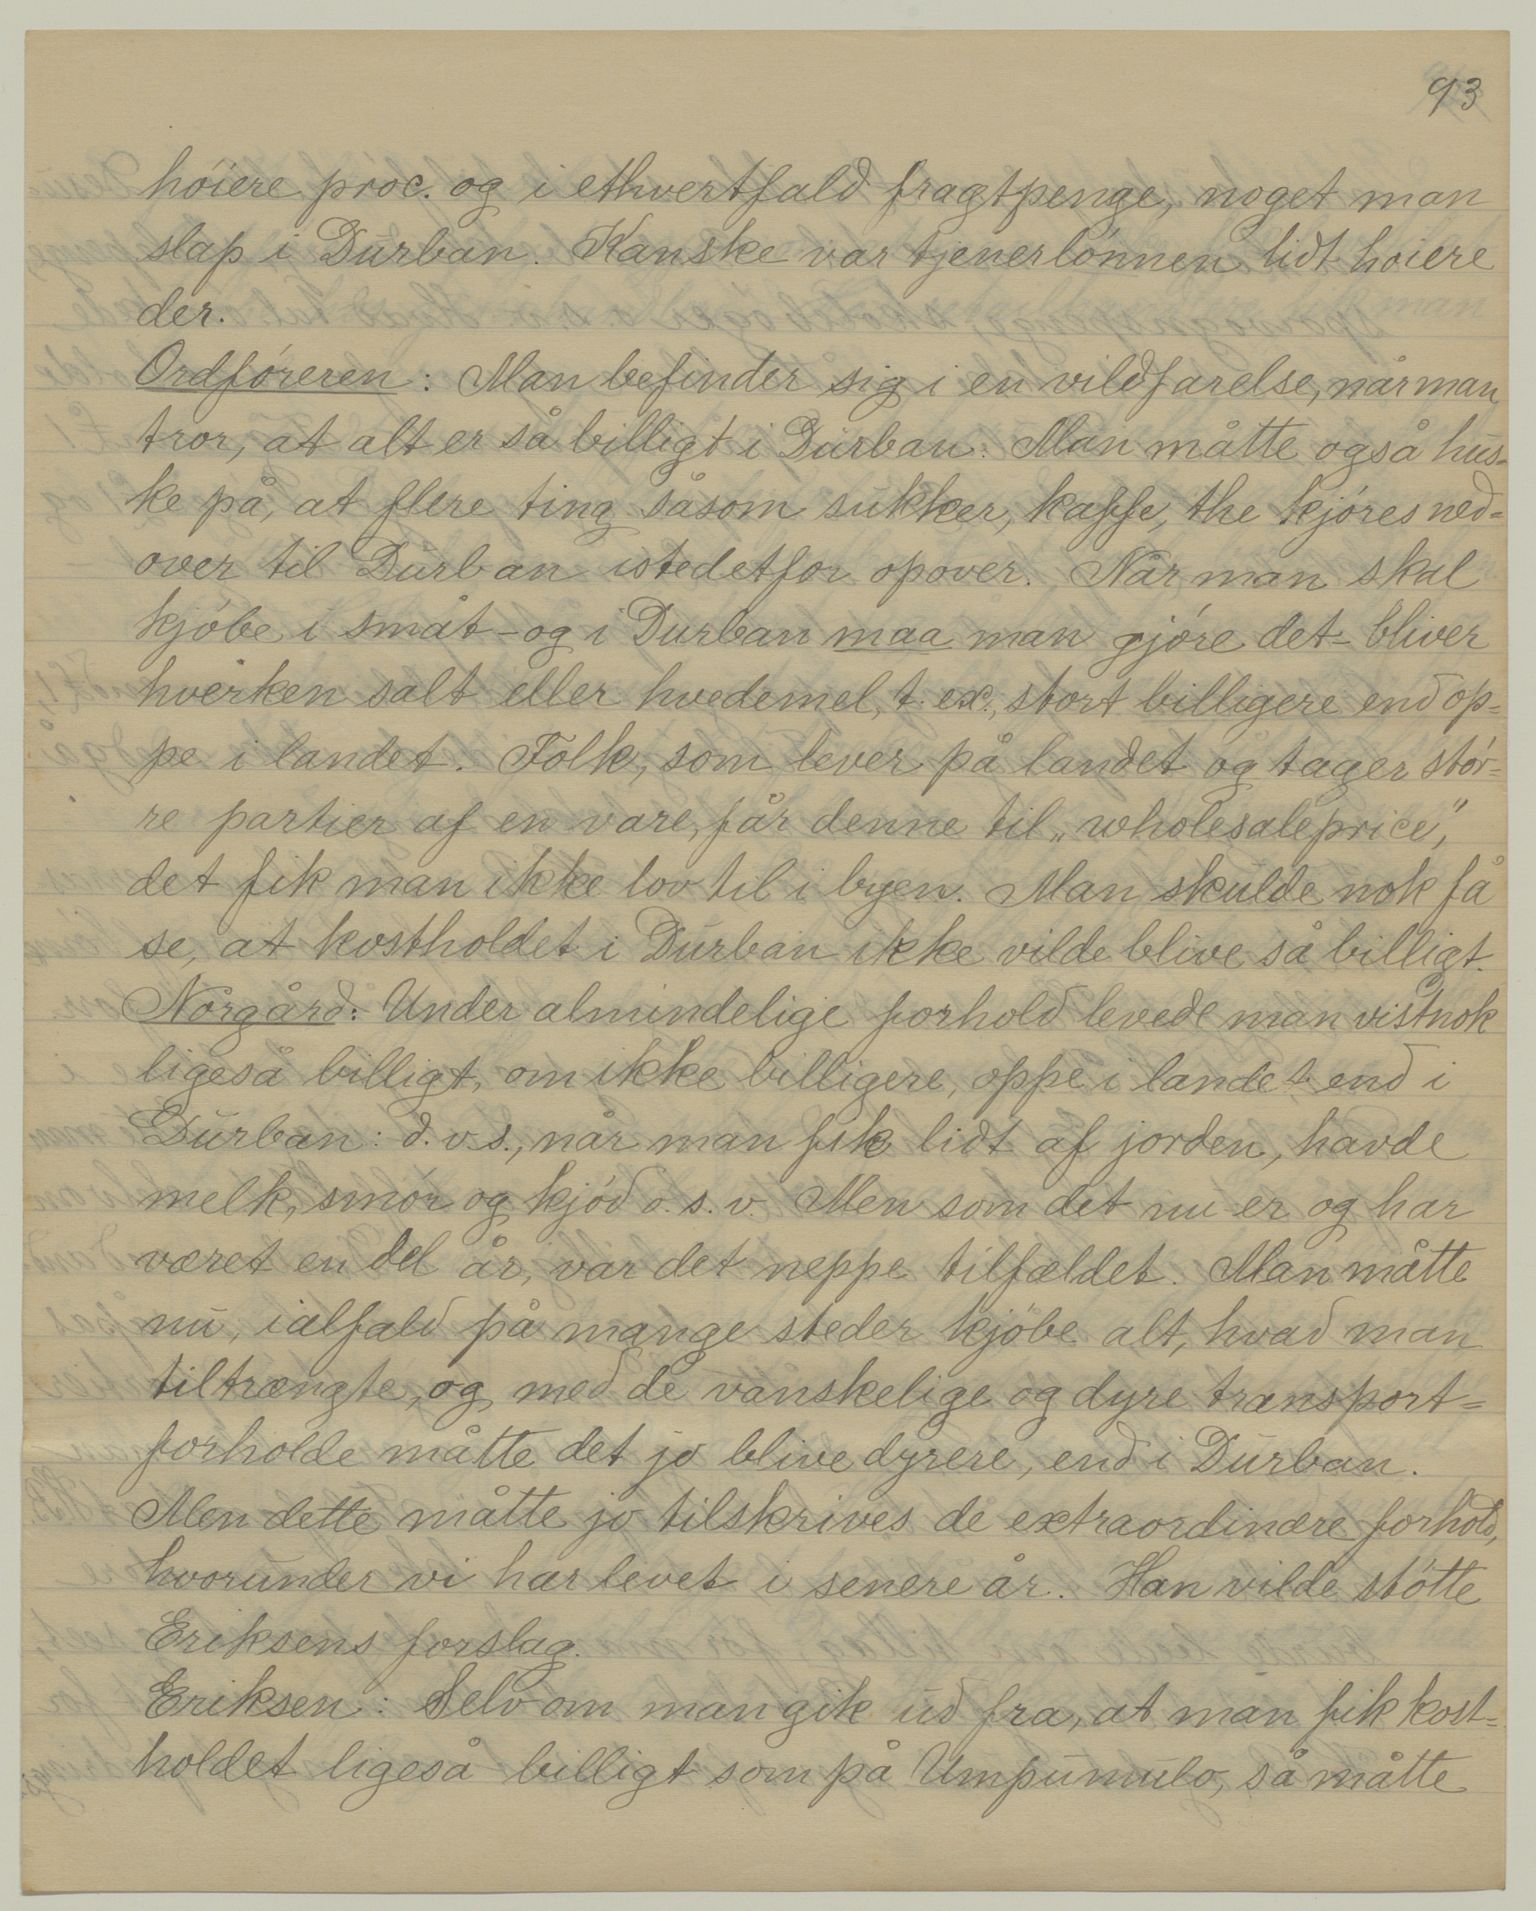 93
höiere proc. og i ethvertfald fragtpenge, noget man
slap i Durban. Kanske var tjenerlönnen lidt höiere
der.
Ordföreren: Man befinder sig i en vildfarelse, når man
tror, at alt er så billigt i Durban. Man måtte også hus-
ke på, at flere ting såsom sukker, kaffe, the kjöres ned-
over til Durban istedetfor opover. Når man skal
kjöbe i småt - og i Durban maa man gjöre det - bliver
hverken salt eller hvedemel, t. ex., stort billigere end op-
pe i landet. Folk, som lever på landet og tager stör-
re partier af en vare, får denne til „wholesaleprice",
det fik man ikke lov til i byen. Man skulde nok få
se, at kostholdet i Durban ikke vilde blive så billigt.
Nörgård: Under almindelige forhold levede man vistnok
ligeså billigt, om ikke billigere, oppe i landet end i
Durban: d.v.s., når man fik lidt af jorden, havde
melk, smör og kjöd o. s. v. Men som det nu er og har
været en del år, var det neppe tilfældet. Man måtte
nu, ialfald på mange steder kjöbe alt, hvad man
tiltrængte, og med de vanskelige og dyre transport-
forholde måtte det jo blive dyrere, end i Durban.
Men dette måtte jo tilskrives de extraordinære forhold,
hvorunder vi har levet i senere år. Han vilde stötte
Eriksens forslag.
Eriksen: Selv om man gik ud fra, at man fik kost-
holdet ligeså billigt som på Umpumulo, så måtte